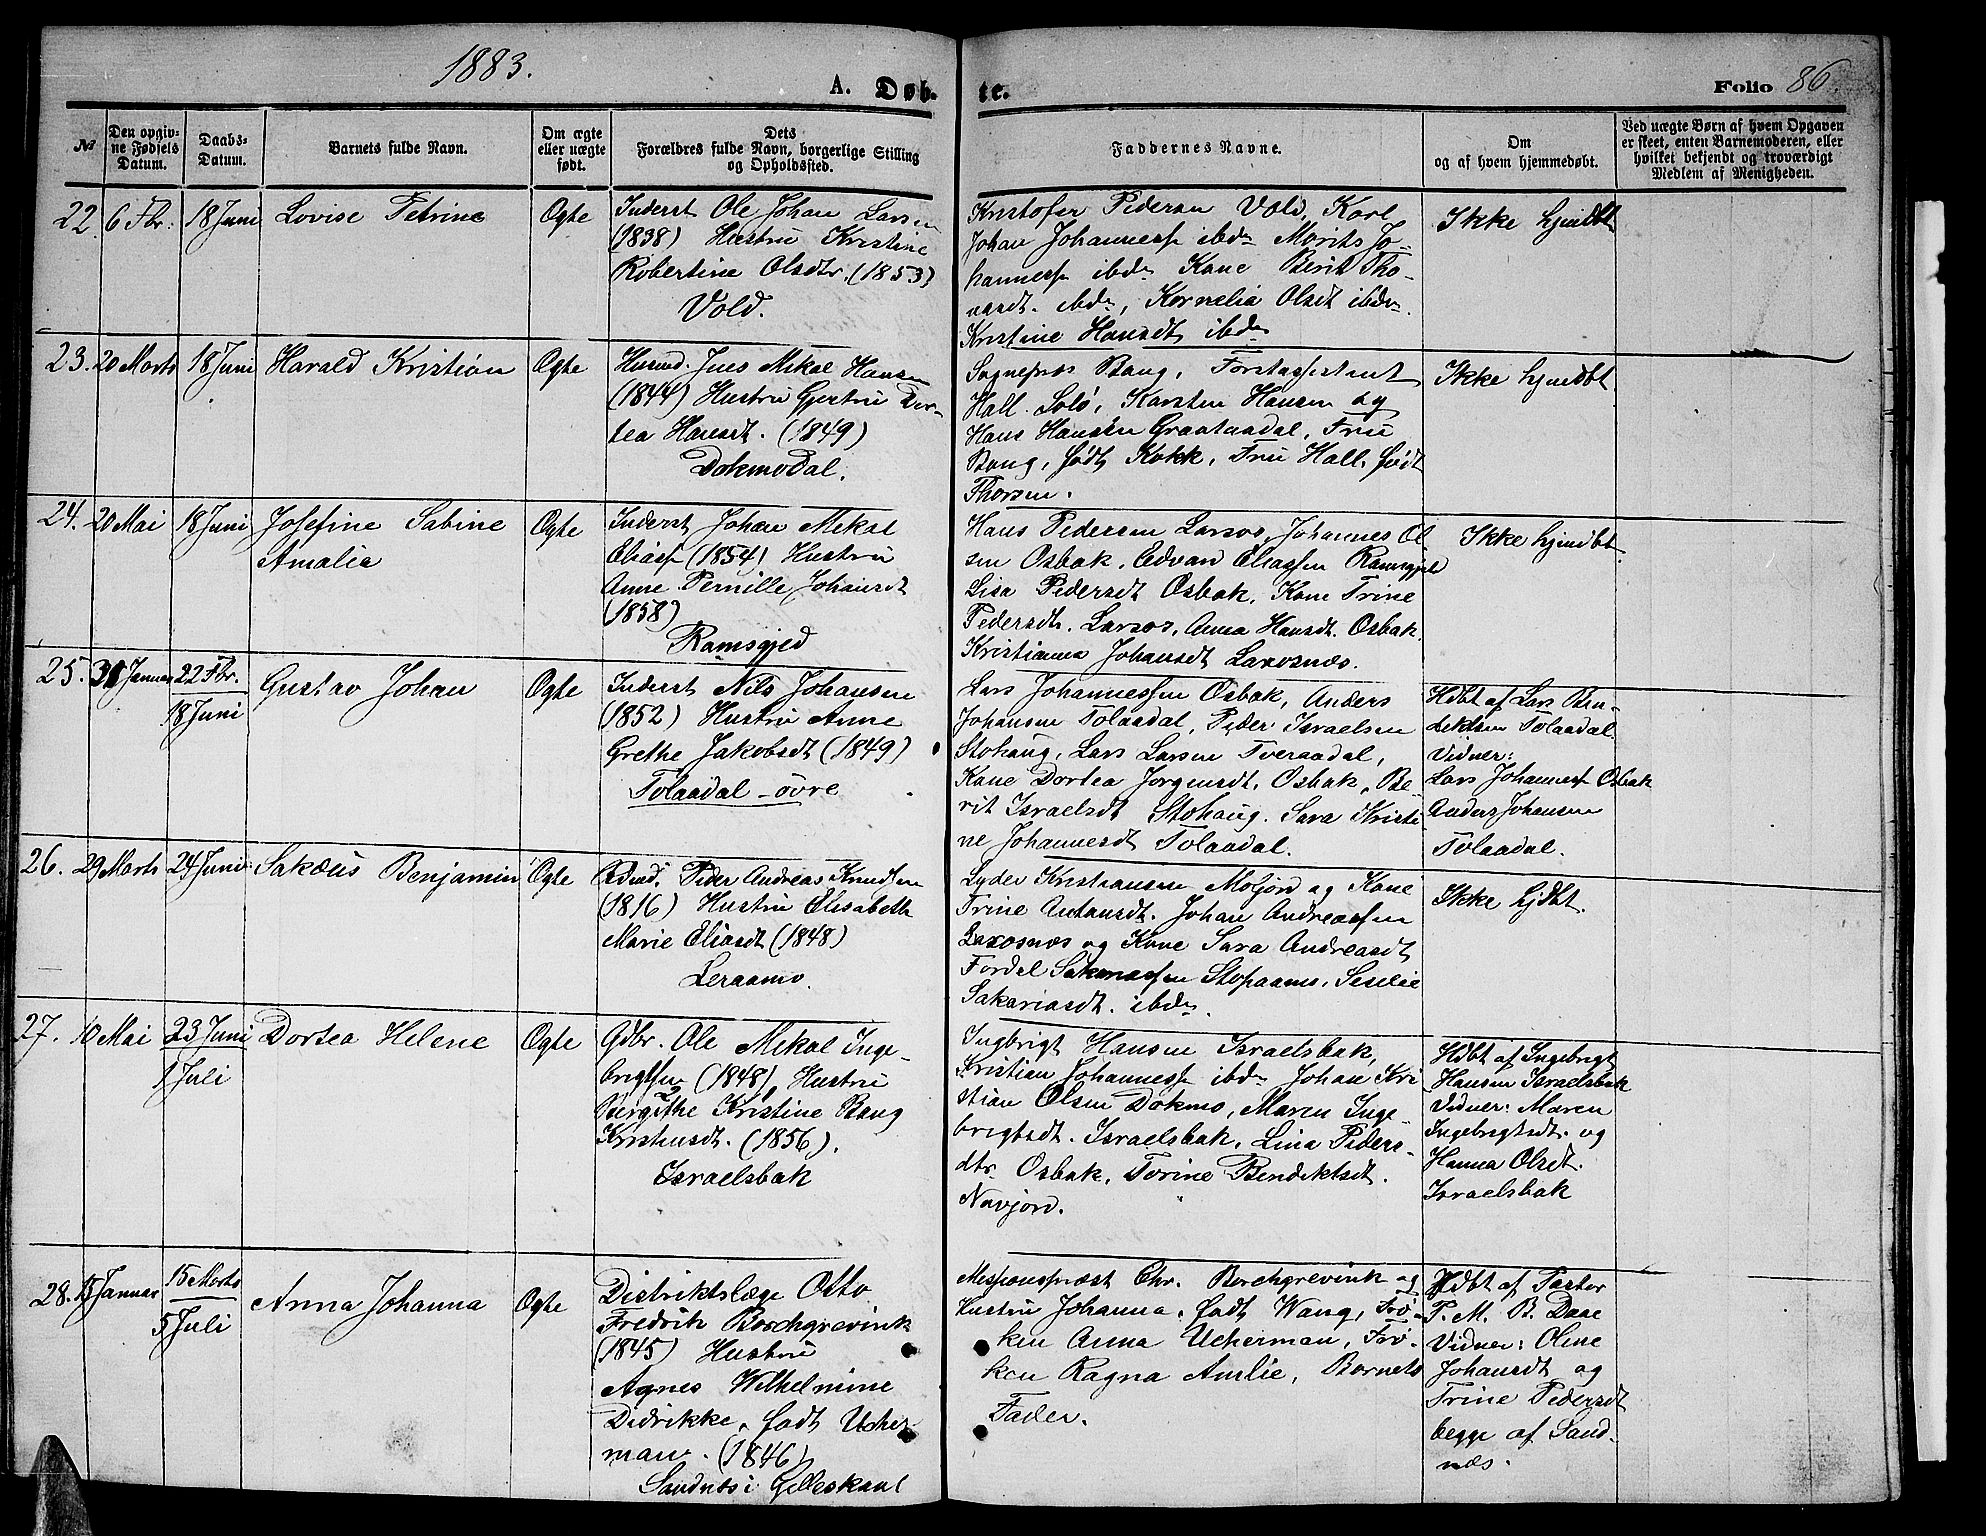 1883.
A. Døb-
te.
Folio 86.
№
Den opgiv-
ne Fødsels
Datum.
Daabs-
Datum.
Barnets fulde Navn.
Om ægte
eller uægte
født.
Dets
Forældres fulde Navn, borgerlige Stilling
og Opholdssted.
Faddernes Navne.
Om
og af hvem hjemmedøbt.
Ved uægte Børn af hvem Opgaven
er skeet, enten Barnemoderen, eller
hvilket bekjendt og troværdigt
Medlem af Menigheden.
22. 6 Fbr. 18 Juni Lovise Petrine Ægte
Inderst Ole Johan Larsen
(1838) Hustru Kristine
Robertine Olsdtr. (1853)
Vold.
Kristofer Pedersen Vold, Karl
Johan Johannessn ibdn Morits Jo-
hannessn ibdn Kone Berit Tho-
masdt. ibdn, Kornelia Olsdt ibdn.
Kristine Hansdt ibdn
Ikke hjmdbt
23. 20 Marts 18 Juni Harald Kristian Ægte
Husmd. Jens Mikal Hansen
(1844) Hustru Gjertru Dor-
tea Hansdt. (1849)
Dokmodal.
Sognepræs Bang, Forstassistent
Hall. Solø, Karsten Hansen og
Hans Hansen Graataadal, Fru
Bang, født Kokk, Fru Hall, født
Thorsen.
Ikke hjmdbt
24. 20 Mai 18 Juni Josefine Sabine
Amalie
Ægte
Inderst Johan Mikal
Eliasn (1854) Hustru
Anne Pernille Johansdt
(1858)
Ramsgjed
Hans Pedersen Larsos, Johannes Ol-
sen Osbak, Edvard Eliassen Ramsgjeld
Lisa Pedersdt Osbak, Kone Trine
Pedersdt. Larsos, Anna Hansdt. Osbak.
Kristianna Johansdt Laxosnæs.
Ikke hjmdbt
25. 31 Januar 22 Fbr.
18 Juni
Gustav Johan Ægte
Inderst Nils Johansen
(1852) Hustru Anne
Grethe Jakobsdt (1849)
Tolaadal øvre
Lars Johannessen Osbak, Anders
Johansen Tolaadal, Peder Israelsen
Stohaug, Lars Larsen Tveraadal,
Kone Dortea Jorgensdt. Osbak, Be-
rit Israelsdt Stohaug. Sara Kristi-
ne Johannesdt Tolaadal.
Hdbt af Lars Ben-
diktsen Tolaadal.
Vidner:
Lars Johannesn Osbak
Anders Johansen
Tolaadal.
26. 29 Marts 24 Juni Sakæus Benjamin Ægte
Gdmd. Peder Andreas Knudsen
(1816) Hustru Elisabeth
Marie Eliasdt (1848)
Leraamo.
Lyder Kristiansen Moljord og Kone
Trine Antonsdt. Johan Andreassen
Laxosnæs og Kone Sara Andreasdt
Fordel Sakariassen Stopaamo, Seselie
Sakariasdt. ibdn.
Ikke hjdbt.
27. 10 Mai 23 Juni
1 Juli
Dortea Helene Ægte
Gdbr. Ole Mikal Inge-
brigtsn (1848), Hustru
Bergithe Kristine Bang
Kristensdt. (1856).
Israelsbak
Ingbrigt Hansen Israelsbak,
Kristian Johannessn ibdn Johan Kri
stian Olsen Dokmo, Maren Inge-
brigtsdt. Israelsbak, Lina Peders-
dtr. Osbak, Torine Bendiktsdt.
Navjord.
Hdbt af Ingebrigt
Hansen Israelsbak
Vidner: Maren
Ingebrigtsdt. og
Hanna Olsdt.
Israelsbak
28. 15 Januar 15 Marts
5 Juli
Anna Johanna Ægte
Distriktslæge Otto
Fredrik Borchgrevink
(1845) Hustru
Agnes Wilhelmine
Didrikke, født Ucher
man. (1846)
Sandnes i Gilleskaal
Missionspræst Chr. Borchgrevink og
Hustru Johanna, født Wang, Frø-
ken Anna Ucherman, Frø-
ken Ragna Amlie, Barnets
Fader.
Hdbt af Pastor
P. M. B. Daae
Vidner: Oline
Johansdt og
Trine Pedersdt
begge af Sand-
næs.